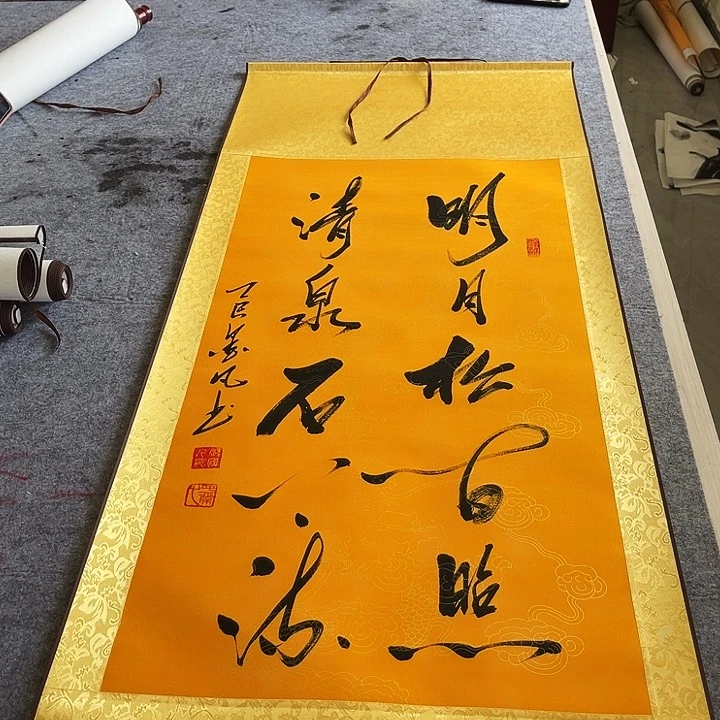 明月松间照
清泉石上流
乙巳凡书